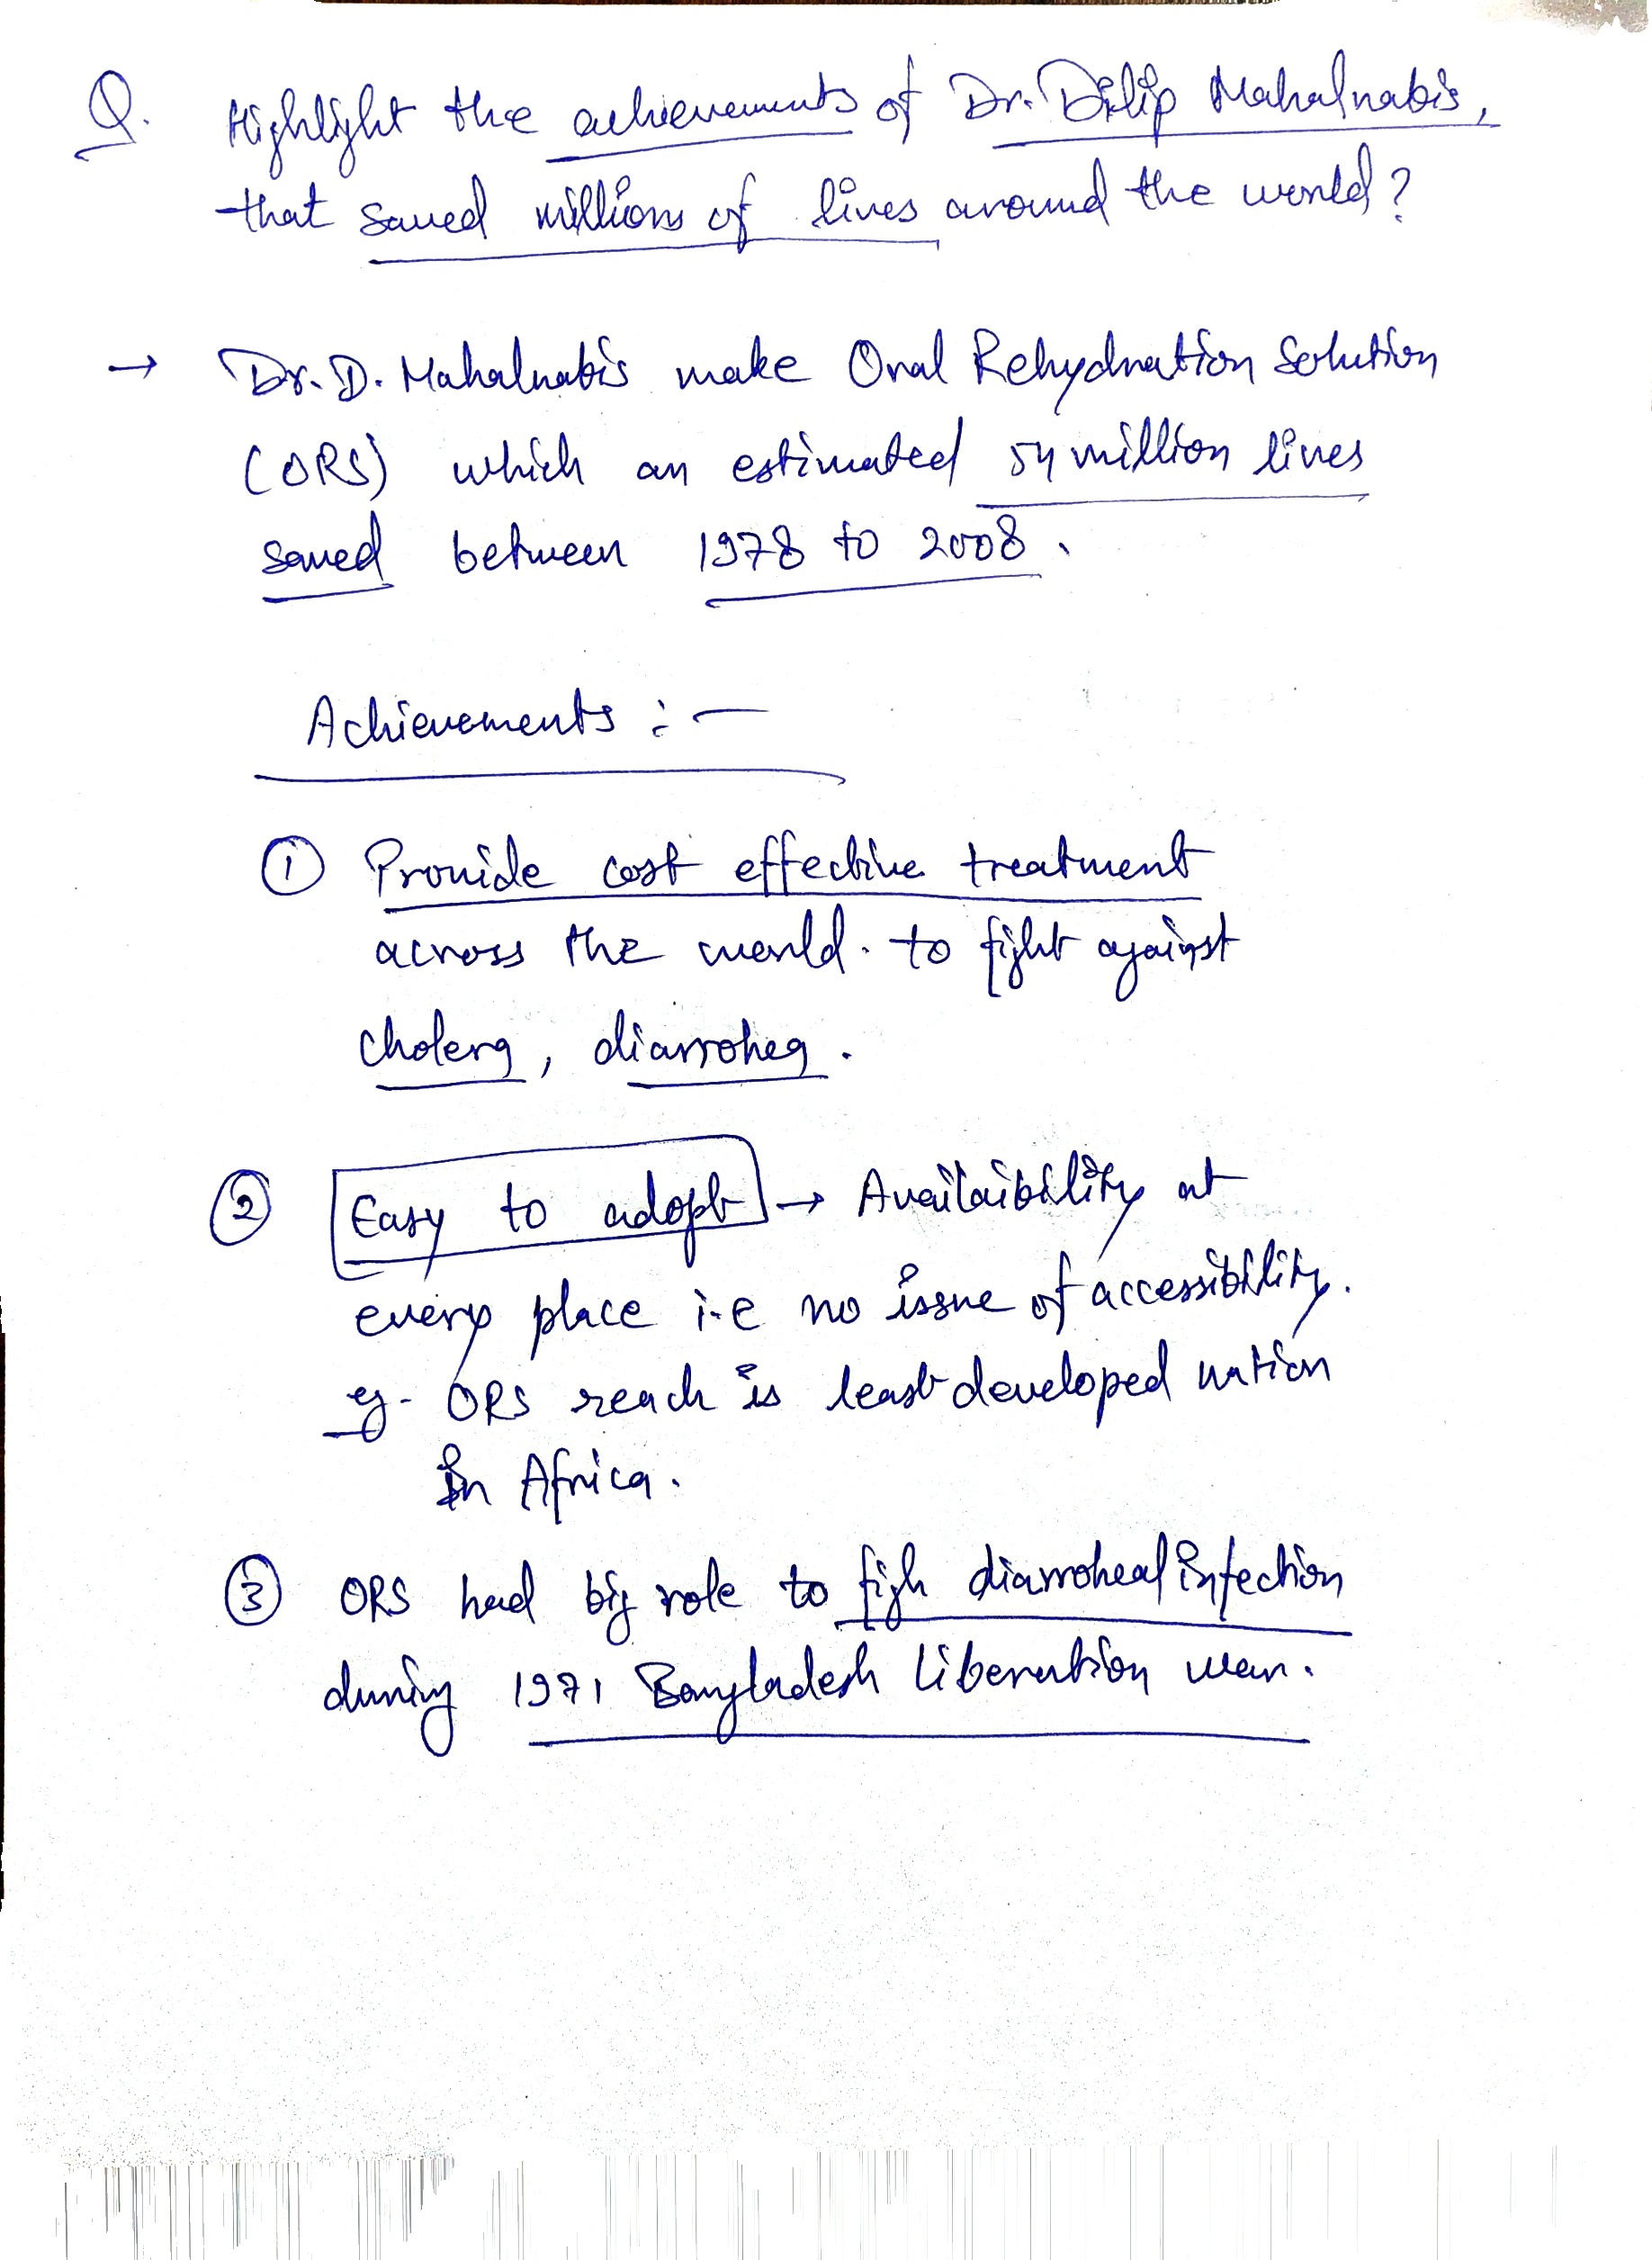 Q. Highlight the achievements of Dr. Dilip Mahalnabis,
that saved millions of lives around the world?
→ Dr. D. Mahalnabis make Oral Rehydration Solution
(ORS) which an estimated 54 million lives
saved between 1978 to 2008.
Achievements :-
① Provide cost effective treatment
across the world. to fight against
cholera, diarrohea.
② Easy to adopt → Availaibility at
every place i.e no issue of accessibility.
eg- ORS reach is least developed nation
in Africa.
③ ORS had big role to figh diarroheal infection
during 1971 Bangladesh liberation war.